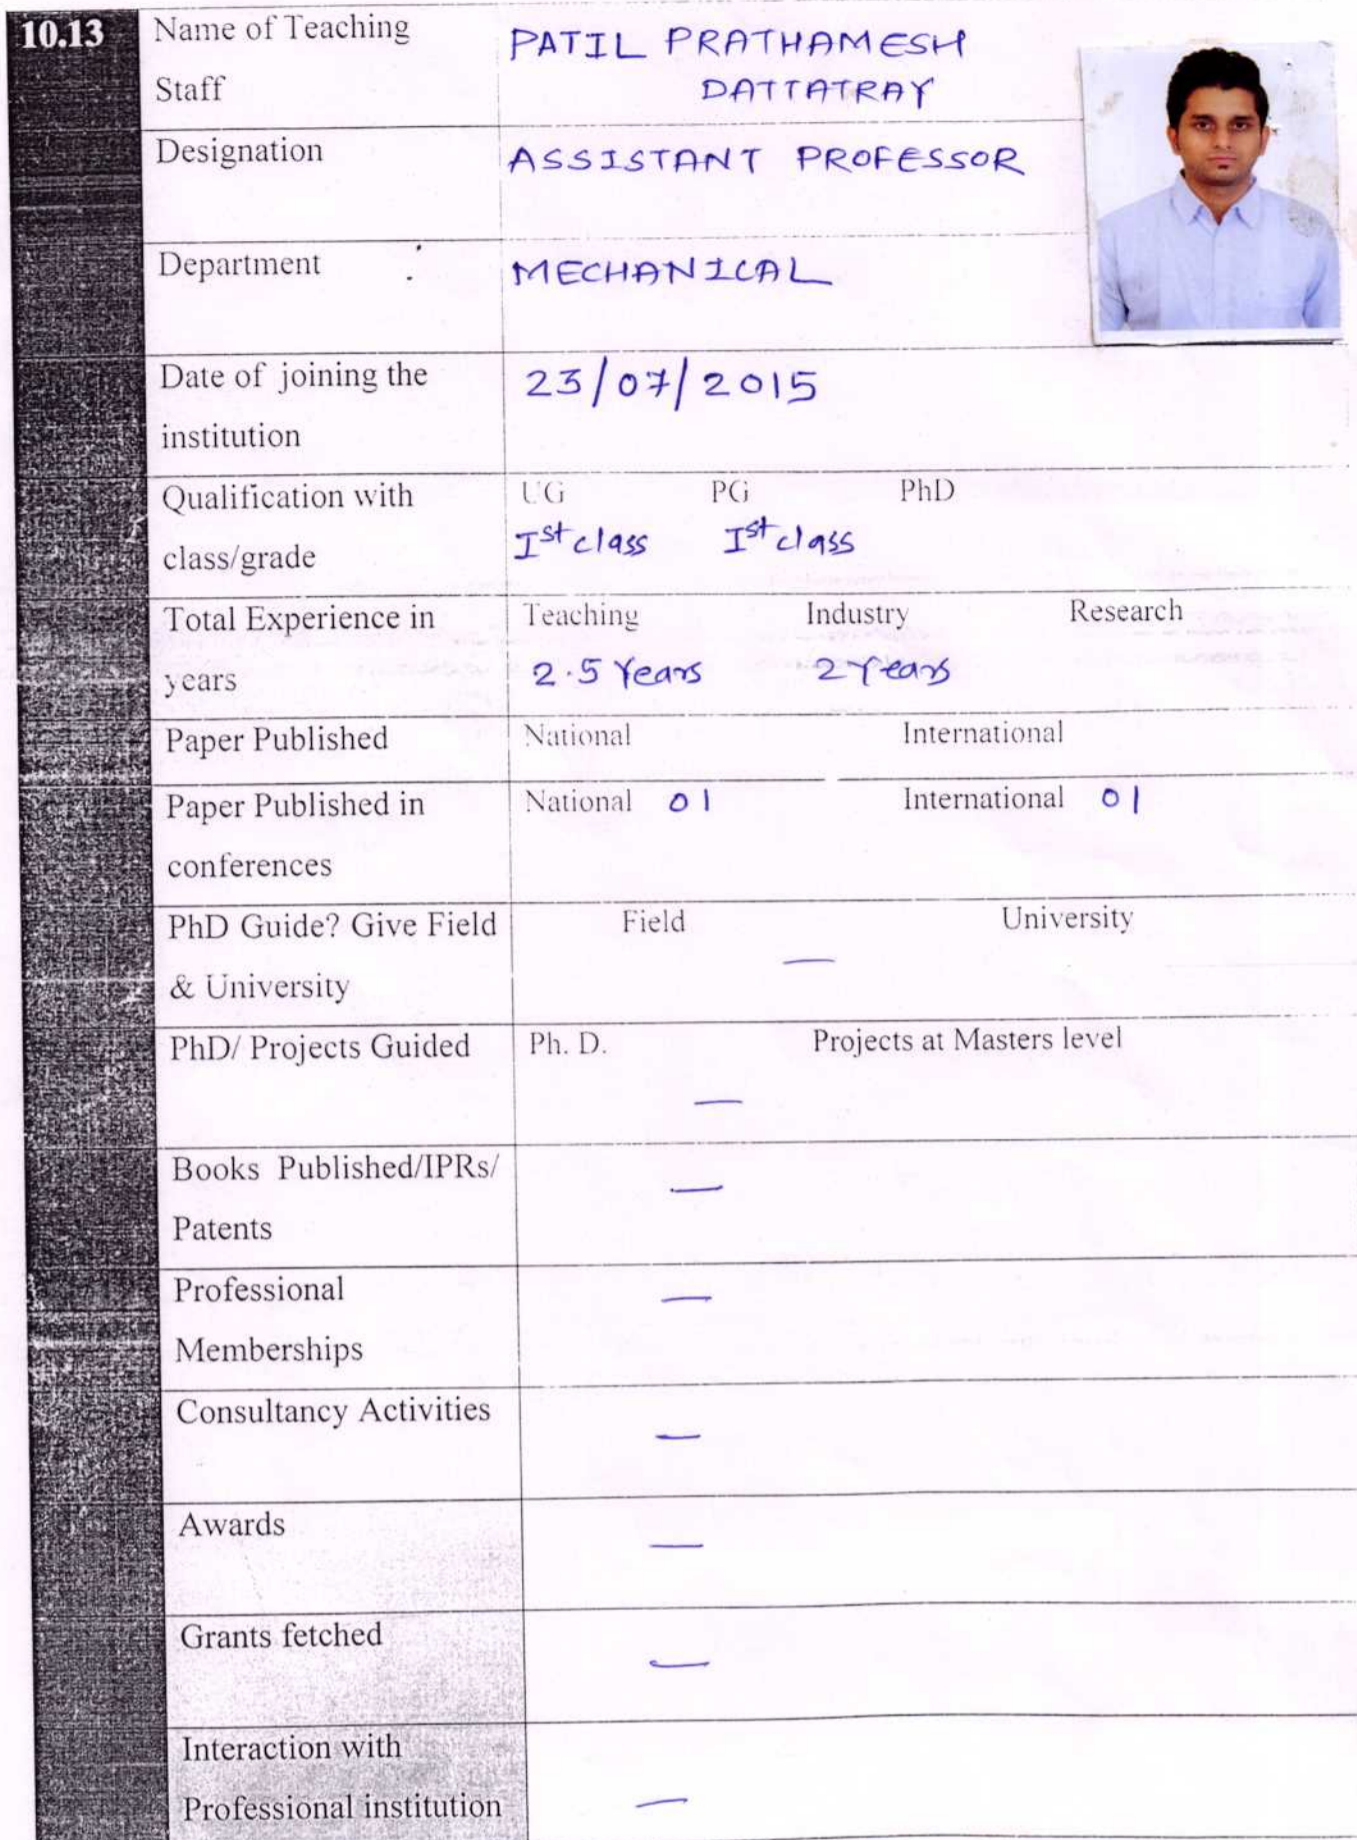 10.13 Name of Teaching PATIL PRATHAMESH
Staff DATTATRAY
Designation ASSISTANT PROFESSOR
Department MECHANICAL
Date of joining the 23/07/2015
institution
Qualification with UG PG PhD
class/grade Ist class Ist class
Total Experience in Teaching Industry Research
years 2.5 Years 2 Years
Paper Published National International
Paper Published in National 01 International 01
conferences
PhD Guide? Give Field Field University
& University —
PhD/ Projects Guided Ph. D. Projects at Masters level
—
Books Published/IPRs/ —
Patents
Professional —
Memberships
Consultancy Activities —
Awards —
Grants fetched —
Interaction with
Professional institution —